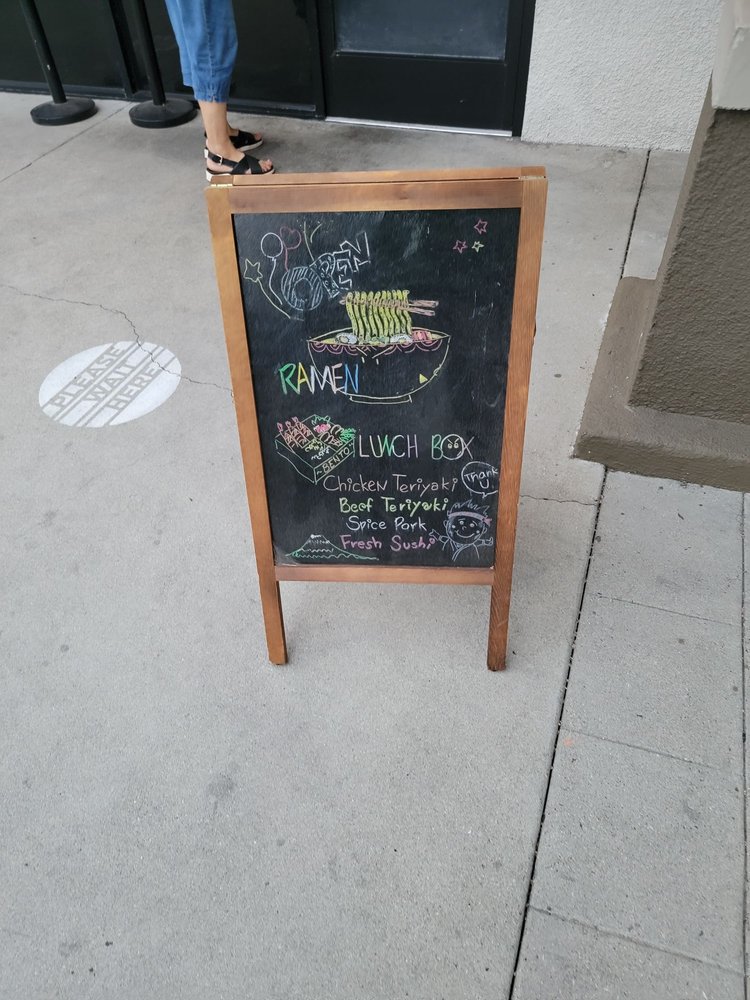 OPEN
RAMEN
BENTO
LUNCH BOX
Chicken Teriyaki
Beef Teriyaki
Spice Pork
Fresh Sushi
Thank
U
PLEASE
WAIT
HERE